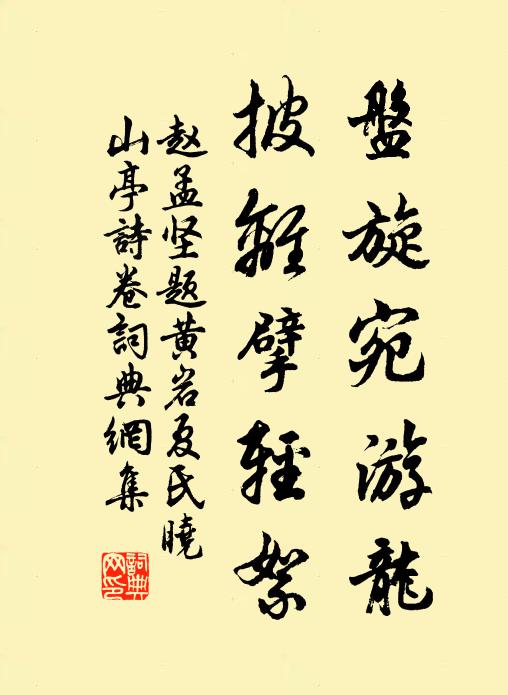 盤旋宛游龍
披離擘輕絮
赵孟坚题黄岩夏氏曉
山亭詩卷詞典網集
詞典
网印